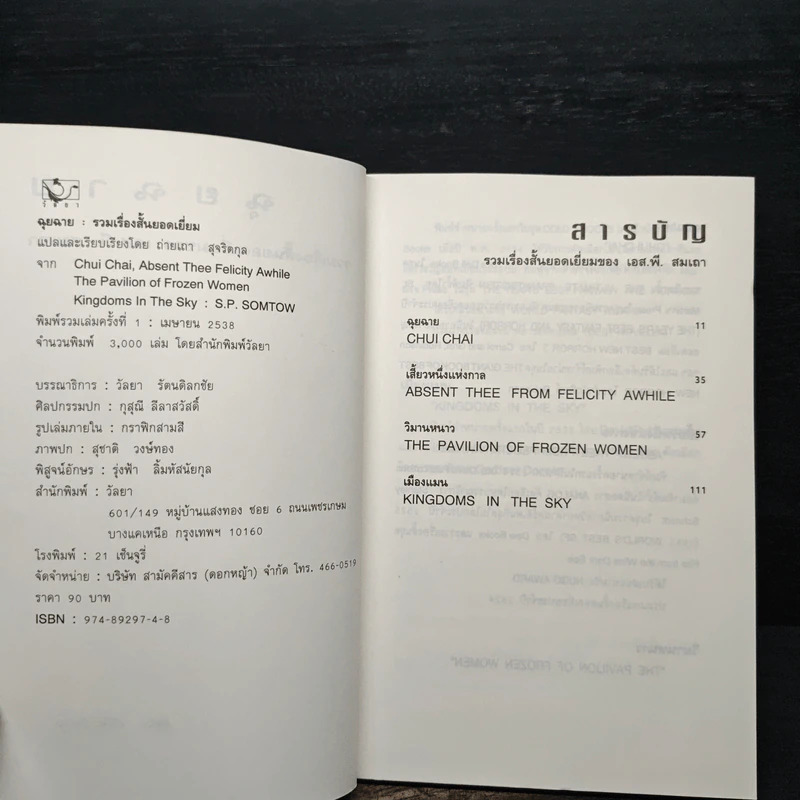 วัลยา
ฉุยฉาย : รวมเรื่องสั้นยอดเยี่ยม
แปลและเรียบเรียงโดย ถ่ายเถา สุจริตกุล
จาก Chui Chai, Absent Thee Felicity Awhile
The Pavilion of Frozen Women
Kingdoms In The Sky : S.P. SOMTOW
พิมพ์รวมเล่มครั้งที่ 1 : เมษายน 2538
จำนวนพิมพ์ 3,000 เล่ม โดยสำนักพิมพ์วัลยา
บรรณาธิการ : วัลยา รัตนดิลกชัย
ศิลปกรรมปก : กุสุณี ลีลาสวัสดิ์
รูปเล่มภายใน : กราฟิกสามสี
ภาพปก : สุชาติ วงษ์ทอง
พิสูจน์อักษร : รุ่งฟ้า ลิ้มหัสนัยกุล
สำนักพิมพ์ : วัลยา
601/149 หมู่บ้านแสงทอง ซอย 6 ถนนเพชรเกษม
บางแคเหนือ กรุงเทพฯ 10160
โรงพิมพ์ : 21 เซ็นจูรี่
จัดจำหน่าย : บริษัท สามัคคีสาร (ดอกหญ้า) จำกัด โทร. 466-0519
ราคา 90 บาท
ISBN : 974-89297-4-8
สารบัญ
รวมเรื่องสั้นยอดเยี่ยมของ เอส.พี. สมเถา
ฉุยฉาย 11
CHUI CHAI
เสี้ยวหนึ่งแห่งกาล 35
ABSENT THEE FROM FELICITY AWHILE
วิมานหนาว 57
THE PAVILION OF FROZEN WOMEN
เมืองแมน 111
KINGDOMS IN THE SKY